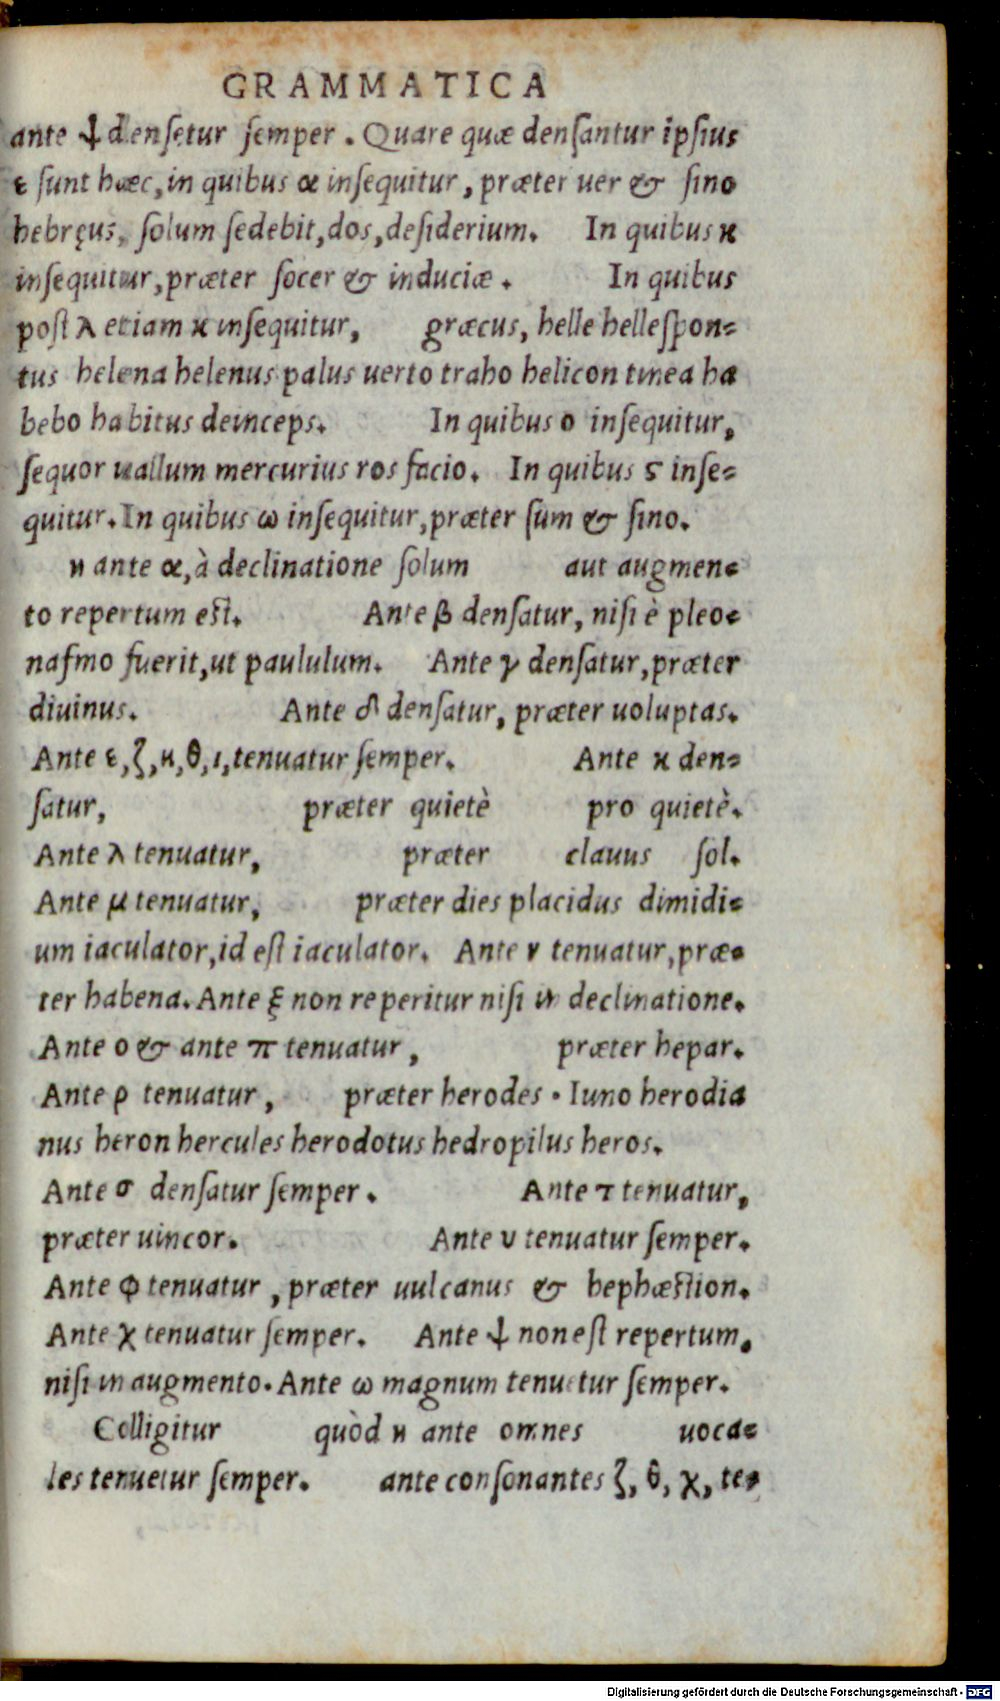 GRAMMATICA
ante ψ densetur semper. Quare quæ densantur ipsius
ε sunt hæc, in quibus α insequitur, præter uer & sino
hebręus, solum sedebit, dos, desiderium. In quibus κ
insequitur, præter socer & induciæ. In quibus
post λ etiam κ insequitur, græcus, helle hellespon-
tus helena helenus palus uerto traho helicon tinea ha
bebo habitus deinceps. In quibus ο insequitur,
sequor uallum mercurius ros facio. In quibus ς inse-
quitur. In quibus ω insequitur, præter sum & sino.
η ante α, à declinatione solum aut augmen-
to repertum est. Ante β densatur, nisi è pleo-
nasmo fuerit, ut paululum. Ante γ densatur, præter
diuinus. Ante δ densatur, præter uoluptas.
Ante ε, ζ, η, θ, ι, tenuatur semper. Ante κ den-
satur, præter quietè pro quietè.
Ante λ tenuatur, præter clauus sol.
Ante μ tenuatur, præter dies placidus dimidi-
um iaculator, id est iaculator. Ante ν tenuatur, præ-
ter habena. Ante ξ non reperitur nisi in declinatione.
Ante ο & ante π tenuatur, præter hepar.
Ante ρ tenuatur, præter herodes. Iuno herodia
nus heron hercules herodotus hedropilus heros.
Ante σ densatur semper. Ante τ tenuatur,
præter uincor. Ante υ tenuatur semper.
Ante φ tenuatur, præter uulcanus & hephæstion.
Ante χ tenuatur semper. Ante ψ non est repertum,
nisi in augmento. Ante ω magnum tenuetur semper.
Colligitur quòd η ante omnes uoca-
les tenuetur semper. ante consonantes ζ, θ, χ, te-
Digitalisierung gefördert durch die Deutsche Forschungsgemeinschaft - DFG